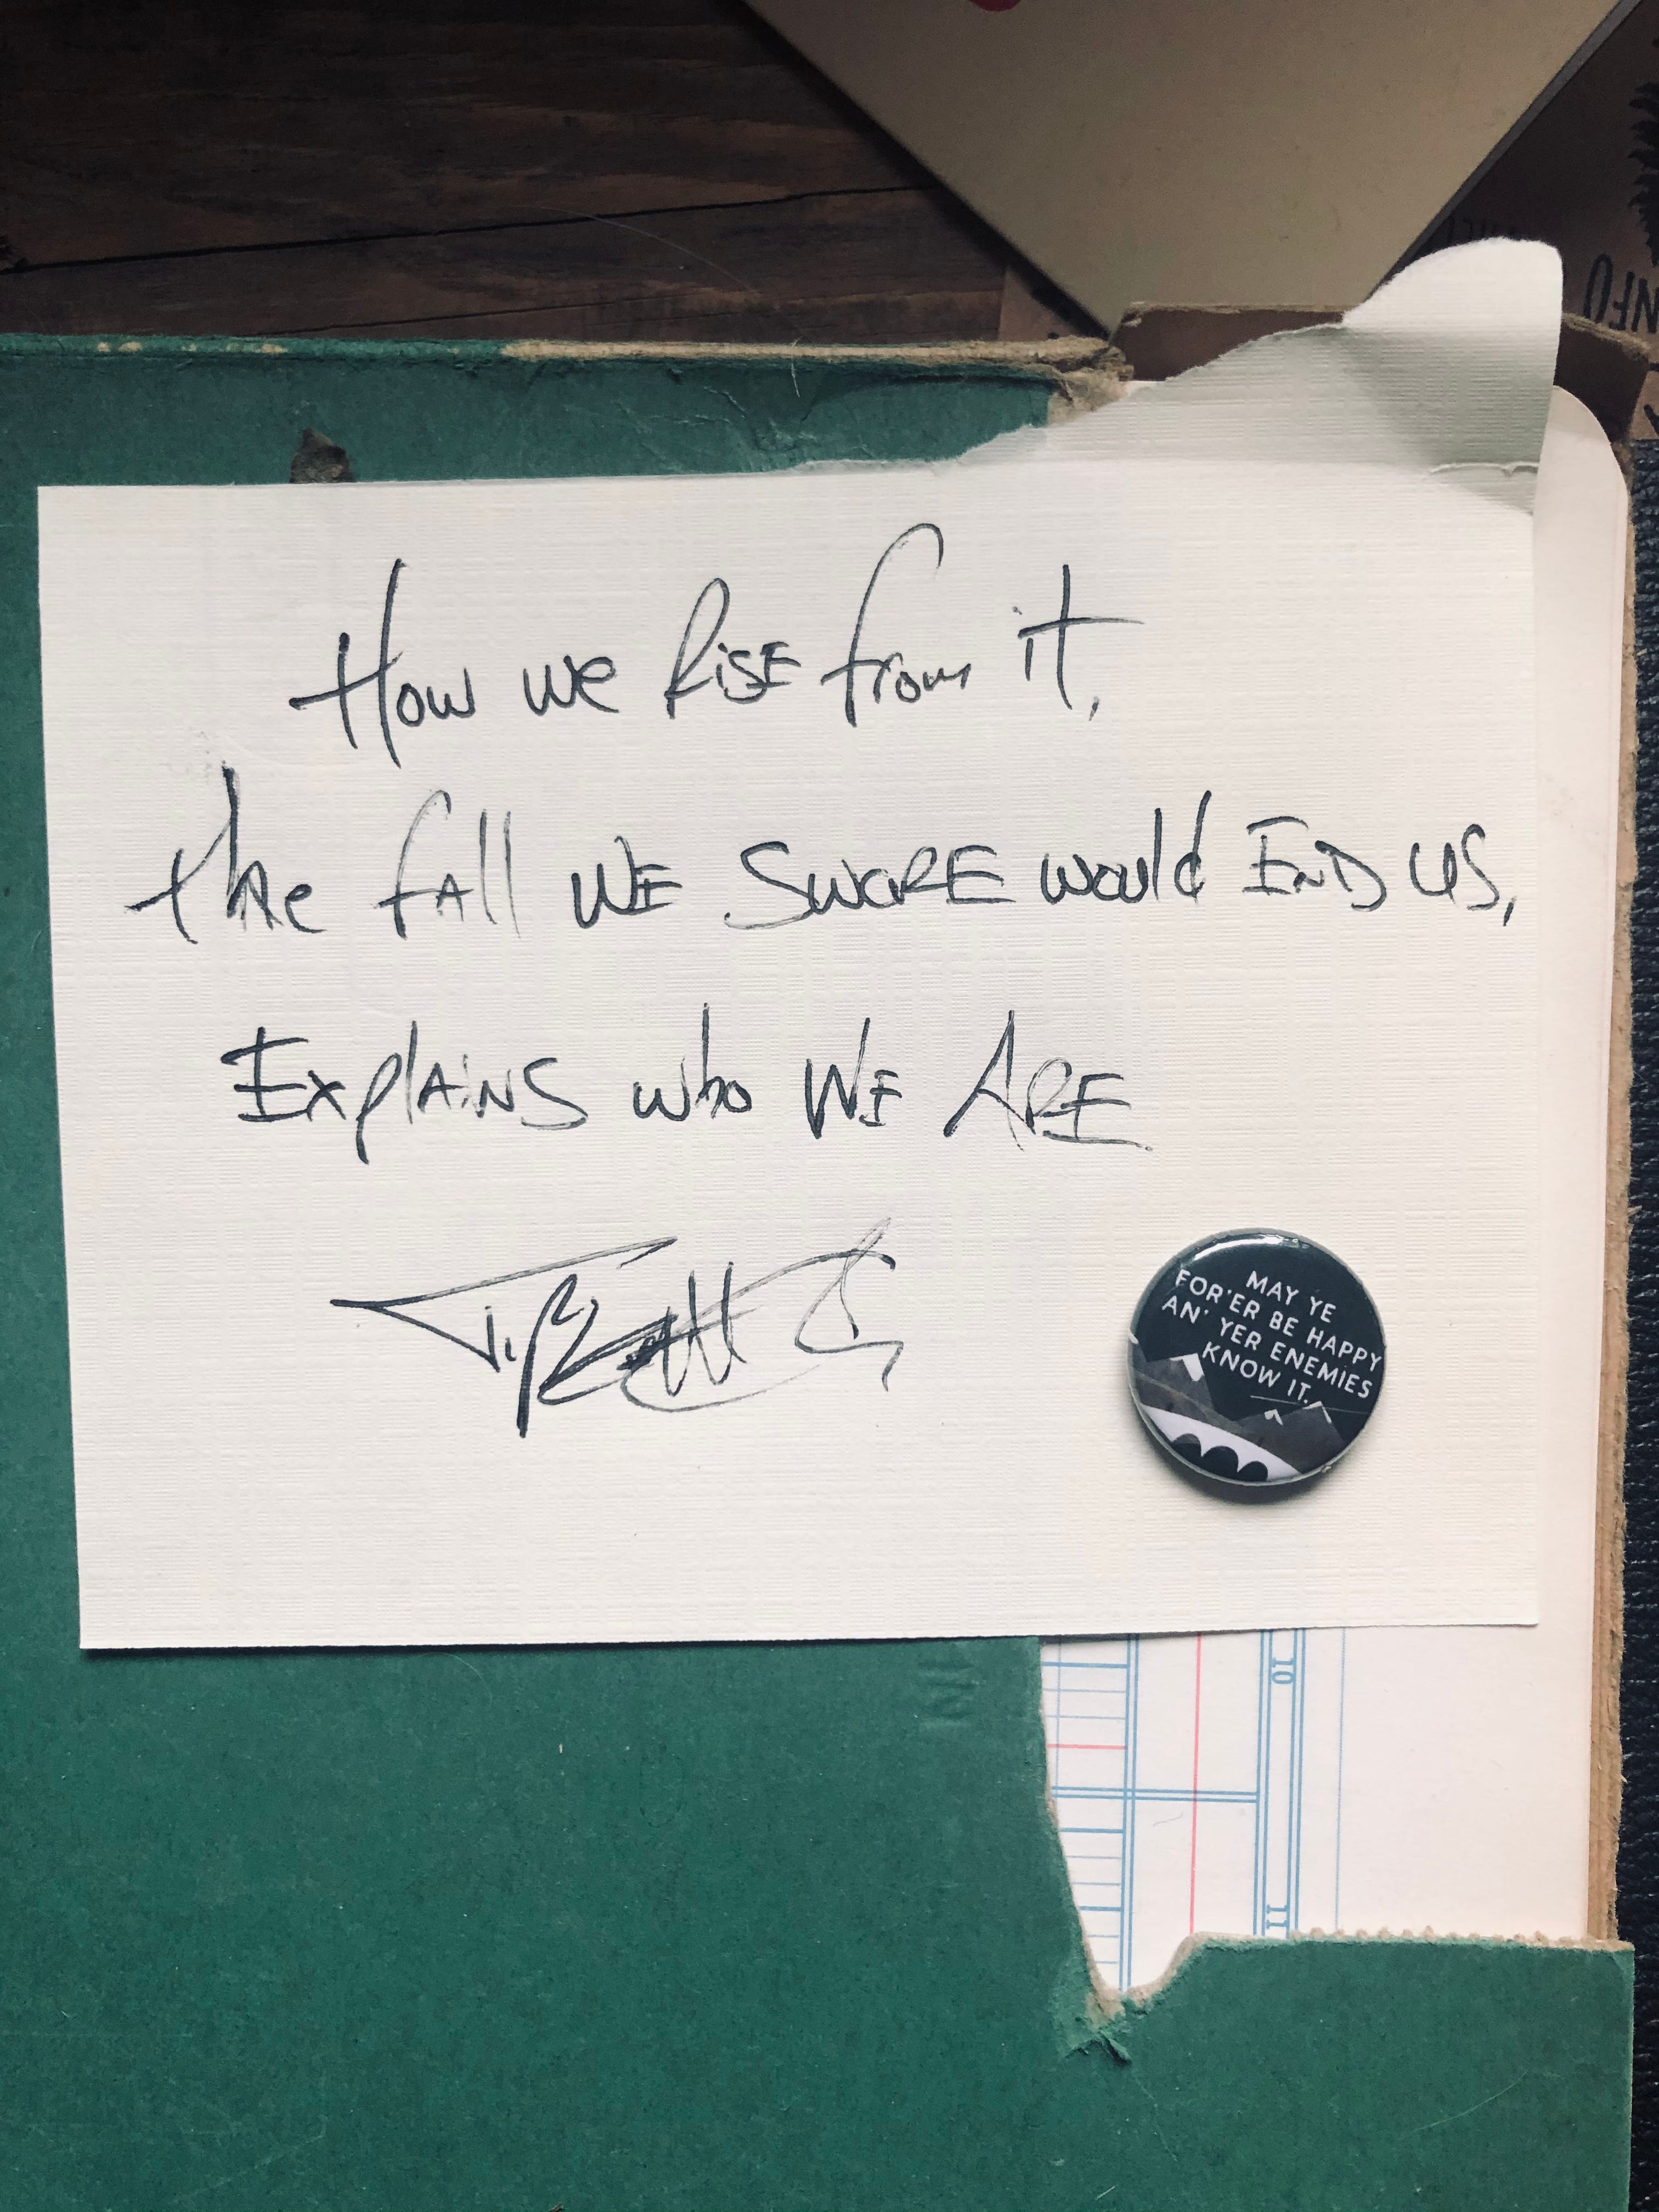 How we Rise from it,
the fall WE SWORE would END US,
ExplAiNS who WE ARE
MAY YE
FOR'ER BE HAPPY
AN' YER ENEMIES
KNOW IT.
10
11